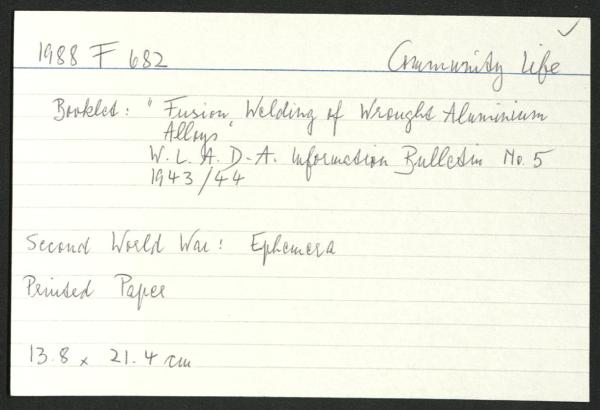 1988 F 682 Community Life
Booklet: "Fusion Welding of Wrought Aluminium
Alloys"
W.L.A.D-A. Information Bulletin No. 5
1943/44
Second World War: Ephemera
Printed Paper
13.8 x 21.4 cm